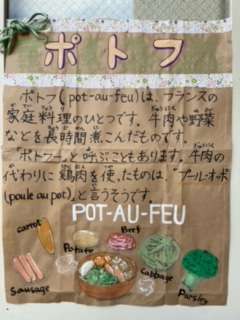 ポトフ
ポトフ(pot-au-feu)は、フランスの
家庭料理のひとつです。牛肉や野菜
などを長時間煮こんだものです。
「ポトフー」と呼ぶこともあります。牛肉の
代わりに鶏肉を使ったものは、「プール・オ・ポ
(poule au pot)」と言うそうです。
POT-AU-FEU
carrot
Potato
Beet
Cabbage
Sausage
Parsley